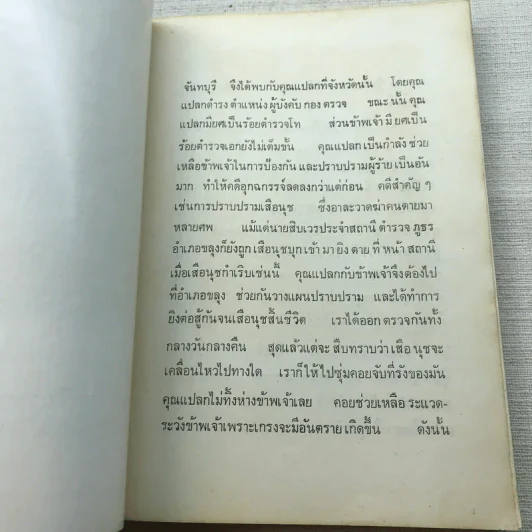 จันทบุรี จึงได้พบกับคุณแปลกที่จังหวัดนั้น โดยคุณ
แปลกดำรง ตำแหน่ง ผู้บังคับ กอง ตรวจ ขณะ นั้น คุณ
แปลกมียศเป็นร้อยตำรวจโท ส่วนข้าพเจ้า มี ยศเป็น
ร้อยตำรวจเอกยังไม่เต็มขั้น คุณแปลก เป็นกำลัง ช่วย
เหลือข้าพเจ้าในการป้องกัน และปราบปรามผู้ร้าย เป็นอัน
มาก ทำให้คดีอุกฉกรรจ์ลดลงกว่าแต่ก่อน คดีสำคัญ ๆ
เช่นการปราบปรามเสือนุช ซึ่งอาละวาดฆ่าคนตายมา
หลายศพ แม้แต่นายสิบเวรประจำสถานี ตำรวจ ภูธร
อำเภอขลุงก็ยังถูก เสือนุชบุก เข้า มา ยิง ตาย ที่ หน้า สถานี
เมื่อเสือนุชกำเริบเช่นนี้ คุณแปลกกับข้าพเจ้าจึงต้องไป
ที่อำเภอขลุง ช่วยกันวางแผนปราบปราม และได้ทำการ
ยิงต่อสู้กันจนเสือนุชสิ้นชีวิต เราได้ออก ตรวจกันทั้ง
กลางวันกลางคืน สุดแล้วแต่จะ สืบทราบว่า เสือ นุชจะ
เคลื่อนไหวไปทางใด เราก็ให้ไปซุ่มคอยจับที่รังของมัน
คุณแปลกไม่ทิ้งห่างข้าพเจ้าเลย คอยช่วยเหลือ ระแวด-
ระวังข้าพเจ้าเพราะเกรงจะมีอันตราย เกิดขึ้น ดังนั้น